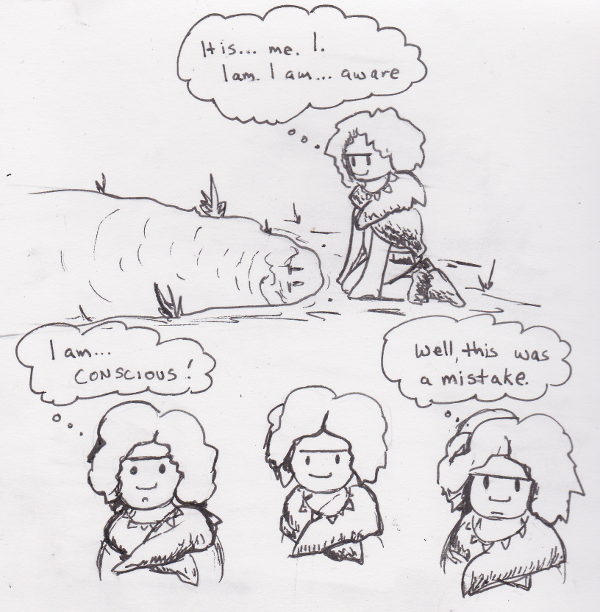 It is... me. I.
I am. I am... aware
I am...
CONSCIOUS!
Well, this was
a mistake.